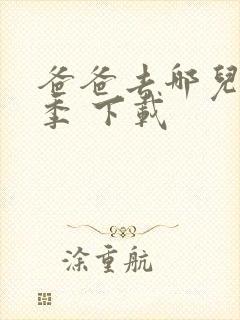 爸爸去哪兒
季 下載
涂重航